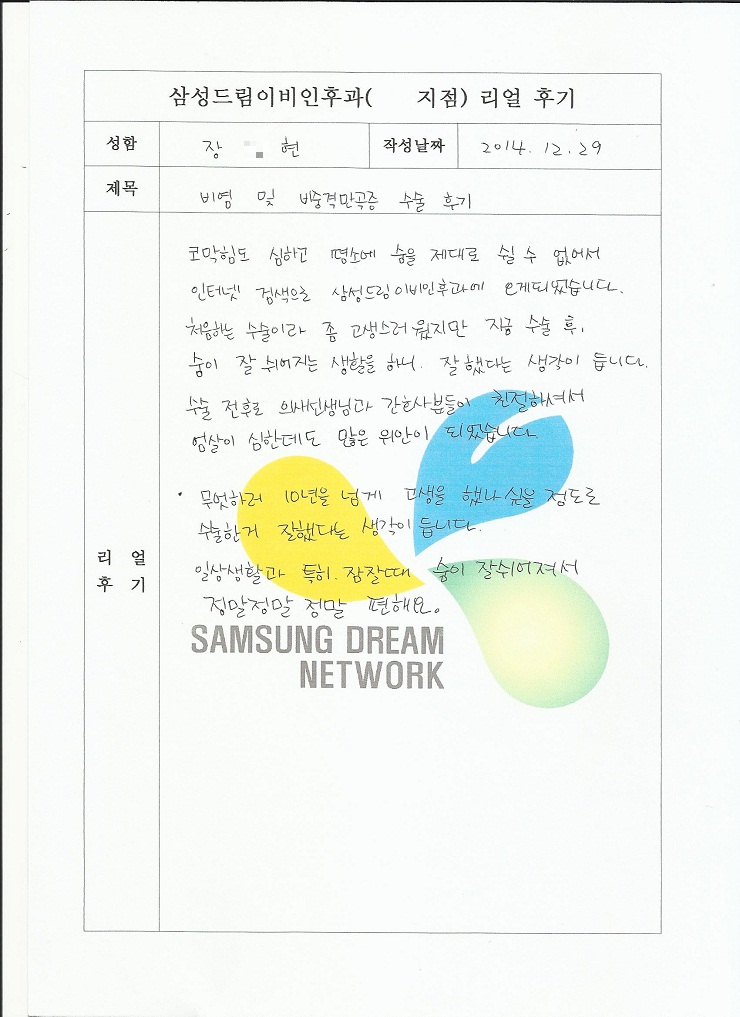 삼성드림이비인후과(      지점) 리얼 후기
성함 장 현 작성날짜 2014. 12. 29
제목 비염 및 비중격만곡증 수술 후기
코막힘도 심하고 평소에 숨을 제대로 쉴 수 없어서
인터넷 검색으로 삼성드림이비인후과에 오게되었습니다.
처음하는 수술이라 좀 고생스러웠지만 지금 수술 후,
숨이 잘 쉬어지는 생활을 하니. 잘했다는 생각이 듭니다.
수술 전후로 의사선생님과 간호사분들이 친절하셔서
엄살이 심한데도 많은 위안이 되었습니다
· 무엇하러 10년을 넘게 고생을 했나 싶을 정도로
수술한거 잘했다는 생각이 듭니다.
일상생활과 특히. 잠잘때 숨이 잘쉬어져서
정말정말 정말 편해요.
리 얼
후 기
SAMSUNG DREAM
NETWORK